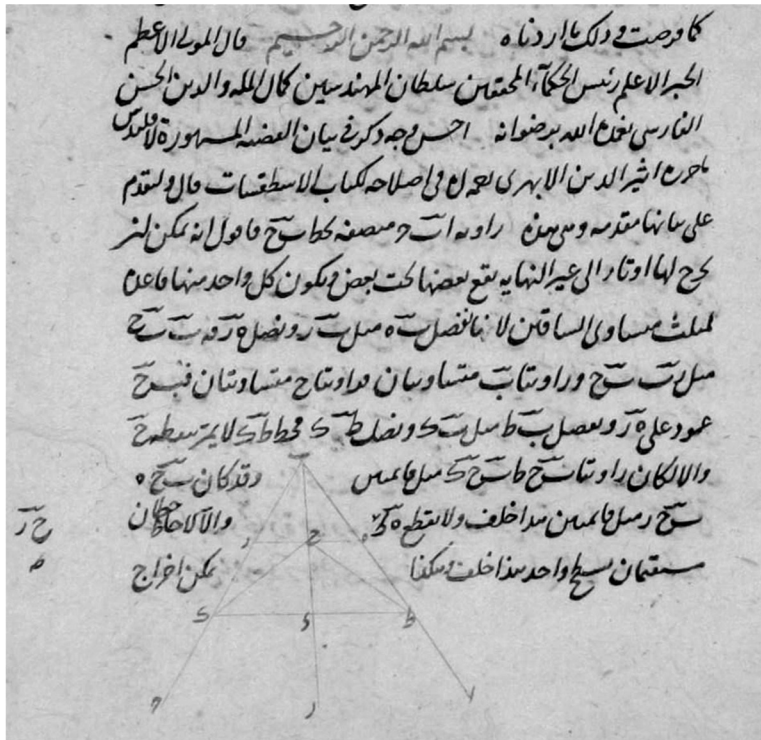 كما فرضت وذلك ما اردناه بسم الله الرحمن الرحيم قال المولى الاعظم
الحبر الاعلم رئيس الحكماء المحققين سلطان المهندسين كمال الملة والدين الحسن
الفارسي تغمده الله برضوانه احسن وجه ذكر في بيان القضية المشهورة لاقليدس
ما حرره اثير الدين الابهري رحمه الله في اصلاحه لكتاب الاسطقسات قال ولنقدم
على بيانها مقدمة وهي هذه زاوية ا ب ح منصفة بخط ب ح فاقول انه يمكن ان
يخرج لها اوتار الى غير النهاية يقع بعضها تحت بعض ويكون كل واحد منها قاعدة
لمثلث متساوي الساقين لانا نفصل ب ه مثل ب ر ونصل ه ر
مثل ب ح وزاويتا ب متساويتان فزاويتا ح متساويتان فب ح
عمود على ه ر ونفصل ب ط مثل ب ك ونصل ط ك فخط ط ك لا يمر بنقطة ح
والا لكان زاويتا ب ح ط ب ح ك مثل قائمتين وقد كان ب ح ه
ب ح ر مثل قائمتين هذا خلف ولا يقطع ه ح والا لاحاط خطان
ح ر
مستقيمان بسطح واحد هذا خلف وهكذا يمكن اخراج
ه
ب
ر ح ه
ك ط
ح ا